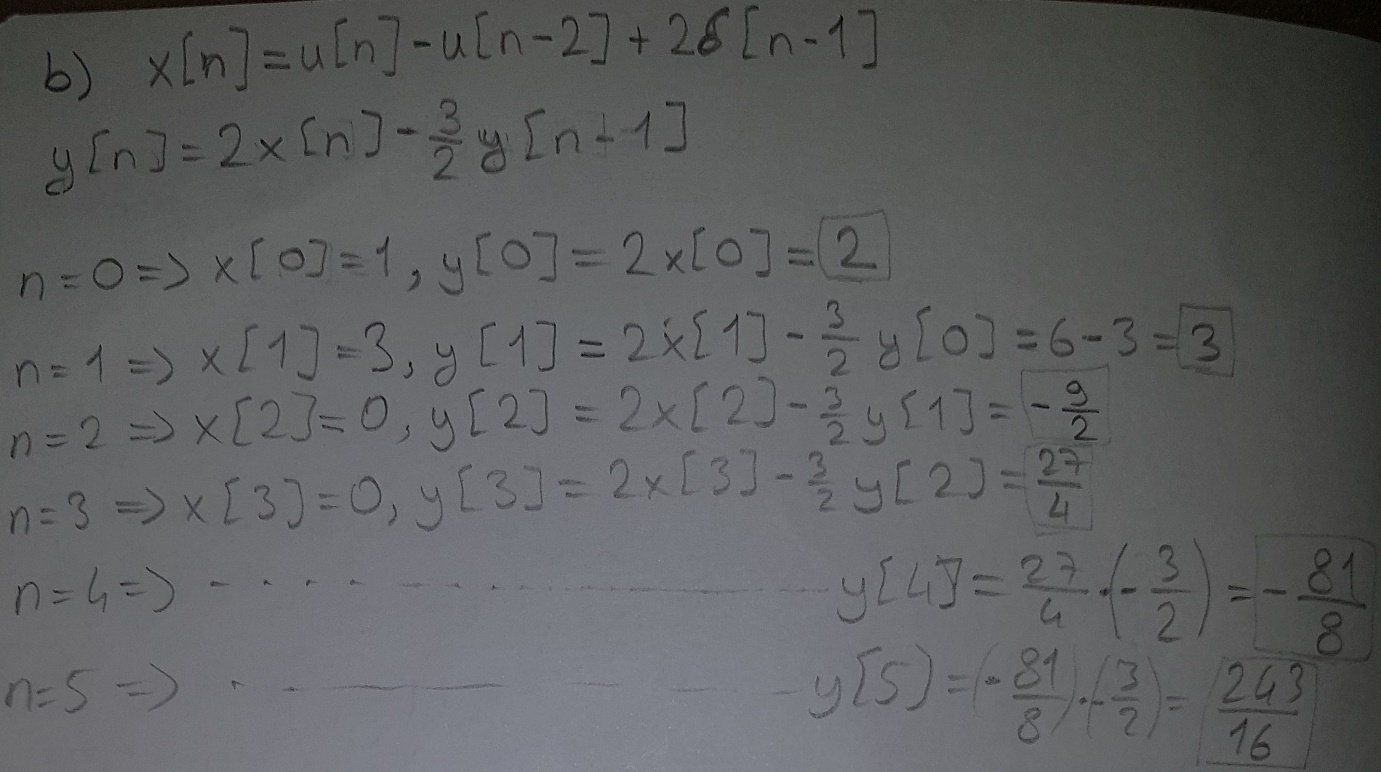 b) x[n]=u[n]-u[n-2]+2δ[n-1]
y[n]=2x[n]-3/2 y[n-1]
n=0=> x[0]=1, y[0]=2x[0]=2
n=1=> x[1]=3, y[1]=2x[1]-3/2 y[0]=6-3=3
n=2=> x[2]=0, y[2]=2x[2]-3/2 y[1]=-9/2
n=3=> x[3]=0, y[3]=2x[3]-3/2 y[2]=27/4
n=4=> - . . . . y[4]=27/4 ·(-3/2)=-81/8
n=5=> . - - - - y[5)=(-81/8)·(-3/2)=243/16